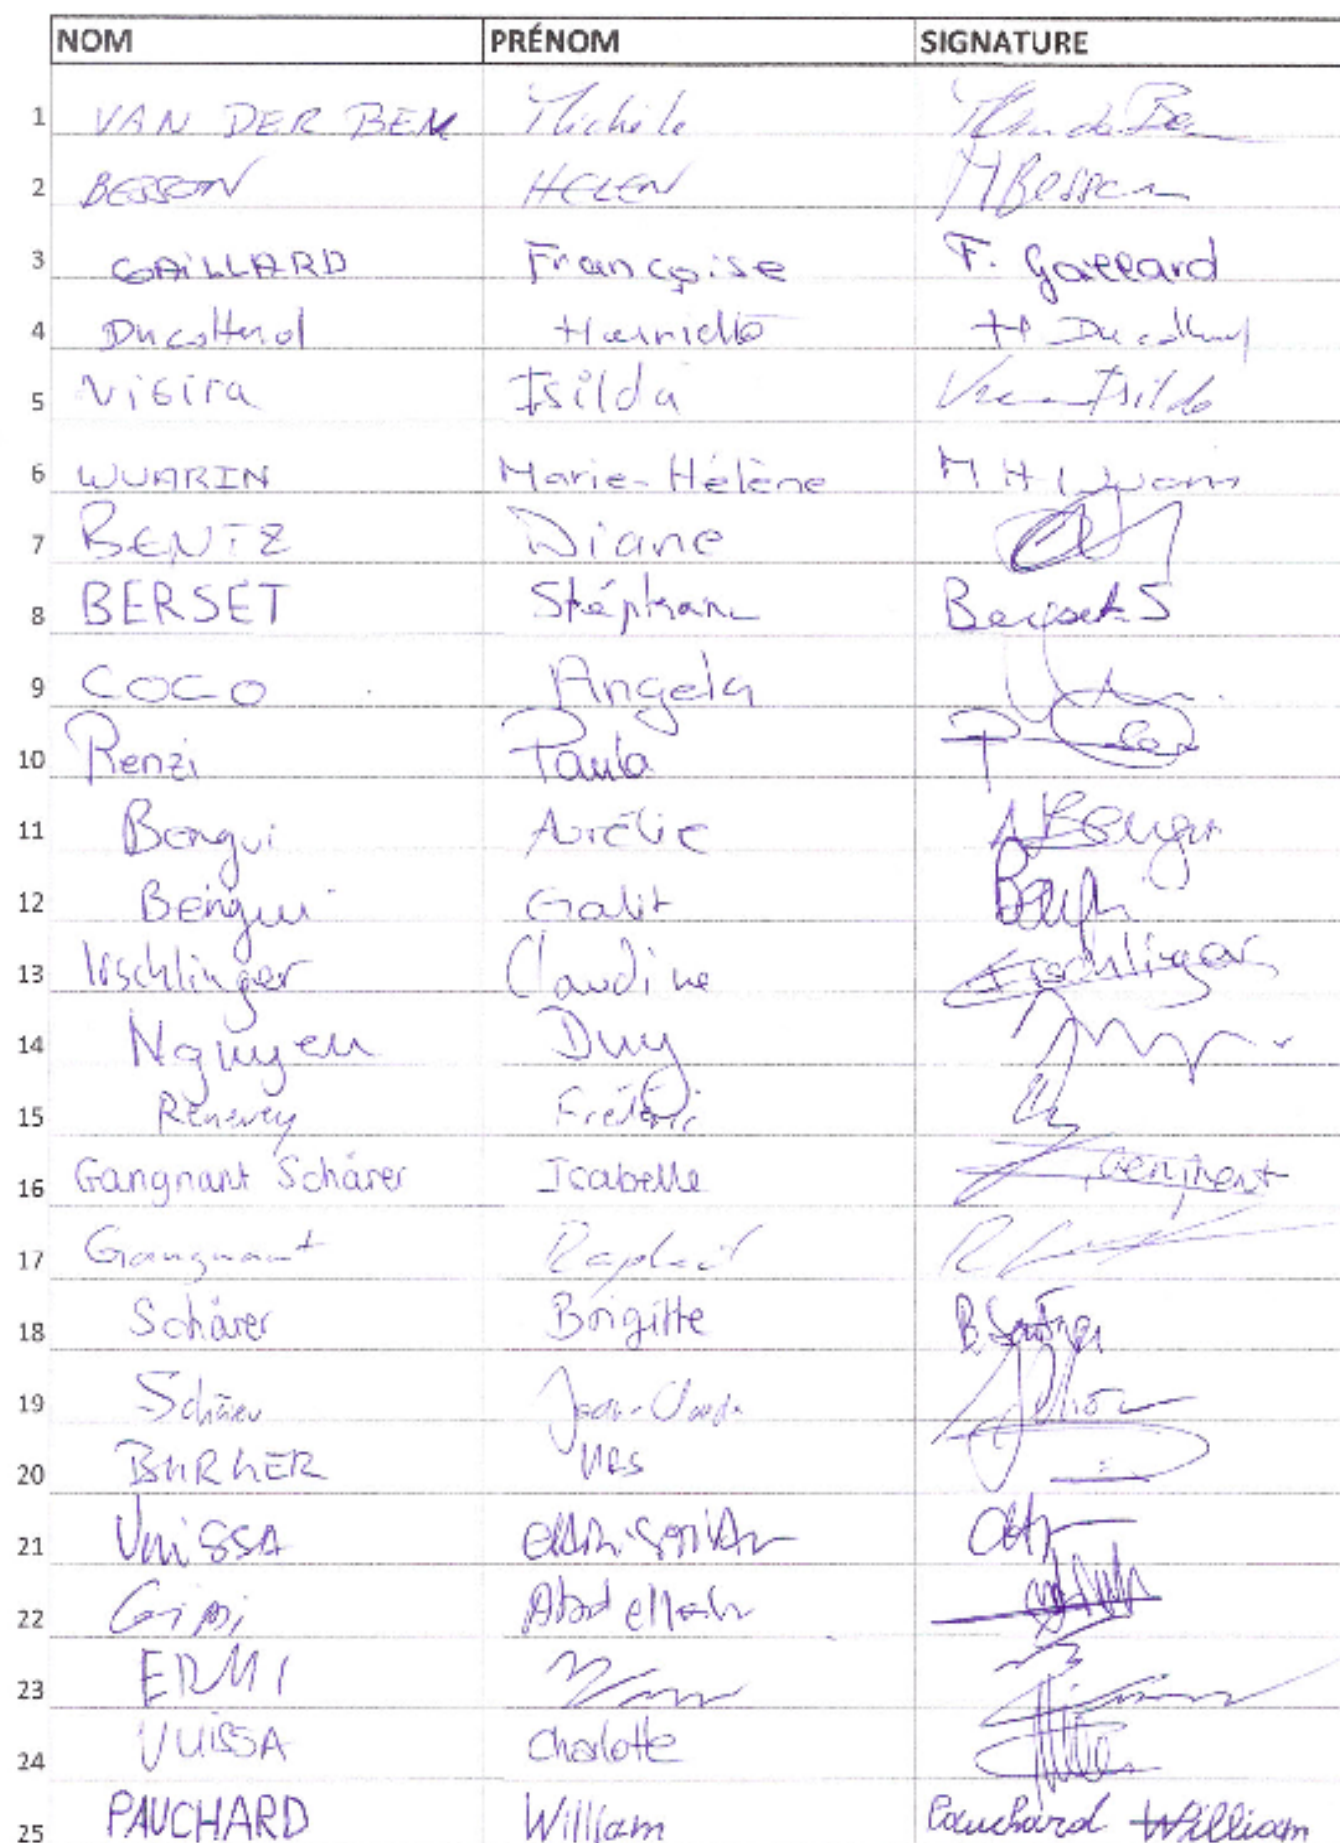 NOM PRÉNOM SIGNATURE
1 VAN DER BEM Michèle
2 BESSON HELEN HBesson
3 GAILLARD Françoise F. Gaillard
4 Ducotterd Henriette H. Ducotterd
5 Isilda Isilda
6 WUARIN Marie-Hélène M H Wuarin
7 BENTZ Diane
8 BERSET Stéphane Berset S
9 COCO Angela
10 Renzi Paula
11 Bengui Aurélie A Bengui
12 Bengui Galit
13 Irschlinger Claudine Irschlinger
14 Nguyen Duy
15 Renevey Frédéric
16 Gangnant Schärer Isabelle
17 Gangnant Raphaël
18 Schärer Brigitte
19 Schärer Jean-Claude
20 BURKER URS
21 Vuissa
22 Abdellah
23 ERMI
24 VUISSA Charlotte
25 PAUCHARD William Pauchard William